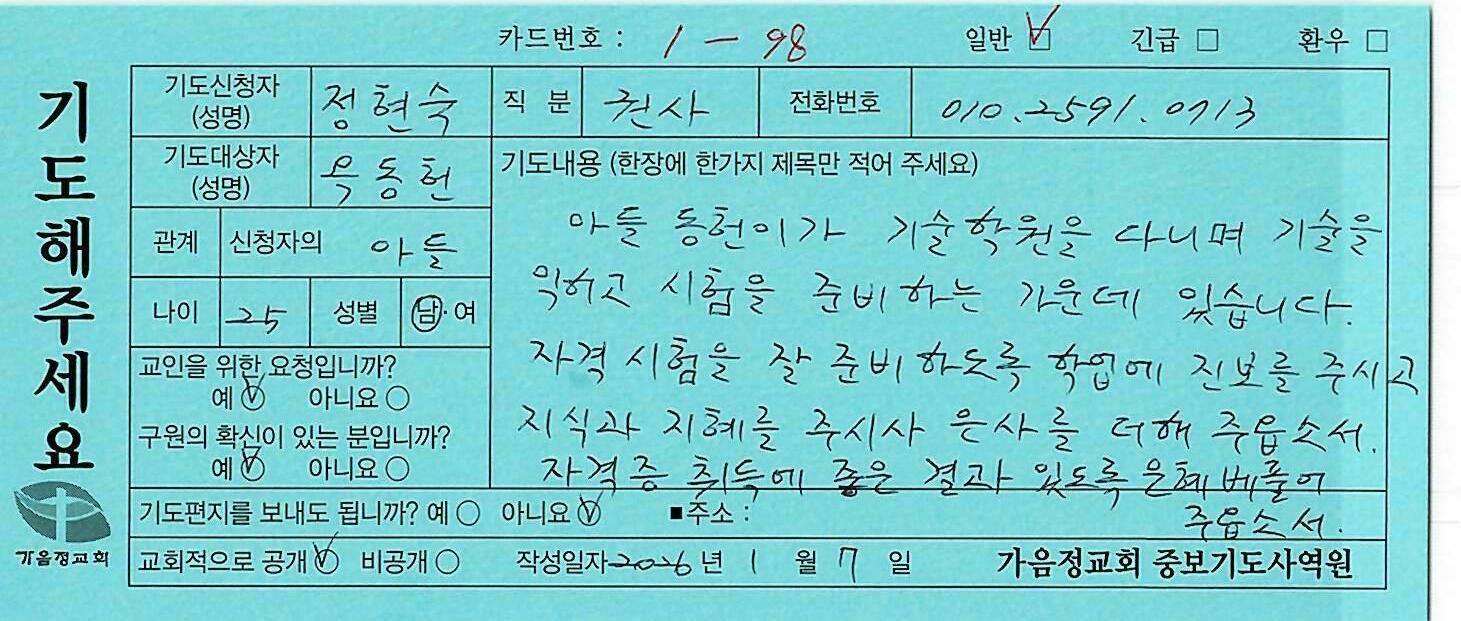 카드번호 : 1 - 98 일반 ☑ 긴급 □ 환우 □
기도해주세요
기도신청자 (성명) 정현숙 직 분 권사 전화번호 010.2591.0713
기도대상자 (성명) 옥동헌
기도내용 (한장에 한가지 제목만 적어 주세요)
관계 신청자의 아들
나이 25 성별 남·여
아들 동헌이가 기술학원을 다니며 기술을
익히고 시험을 준비하는 가운데 있습니다.
자격 시험을 잘 준비하도록 학업에 진보를 주시고
지식과 지혜를 주시사 은사를 더해 주옵소서.
자격증 취득에 좋은 결과 있도록 은혜 베풀어
주옵소서.
교인을 위한 요청입니까?
예 ☑ 아니요 ○
구원의 확신이 있는 분입니까?
예 ☑ 아니요 ○
기도편지를 보내도 됩니까? 예 ○ 아니요 ☑ ■주소 :
교회적으로 공개 ☑ 비공개 ○ 작성일자 2026년 1 월 7 일 가음정교회 중보기도사역원
가음정교회